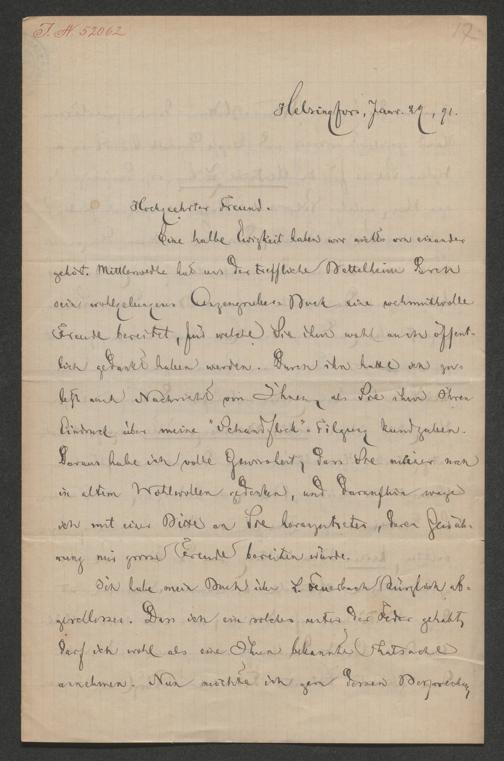 I. N. 52062
17
Helsingfors, Janr. 27, 91.
Hochgeehrter Freund.
Eine halbe Ewigkeit haben wir nichts von einander
gehört. Mittlerweile hat uns der treffliche Bettelheim durch
sein wohlgelungenes Anzengruber-Buch eine wehmuthvolle
Freude bereitet, für welche Sie ihm wohl auch öffent-
lich gedankt haben werden. Durch ihn hatte ich zu-
letzt auch Nachricht von Ihnen, als Sie ihm Ihren
Eindruck über meine "Schandfleck"-Filgung kundgaben.
Daraus habe ich volle Gewissheit, dass Sie meiner noch
in altem Wohlwollen gedenken, und daraufhin wage
ich mit einer Bitte an Sie heranzutreten, deren Gewäh-
rung mir grosse Freude bereiten würde.
Ich habe mein Buch über L. Feuerbach kürzlich ab-
geschlossen. Dass ich ein solches unter der Feder gehabt,
darf ich wohl als eine Ihnen bekannte Thatsache
annehmen. Nun möchte ich gern dessen Besprechung